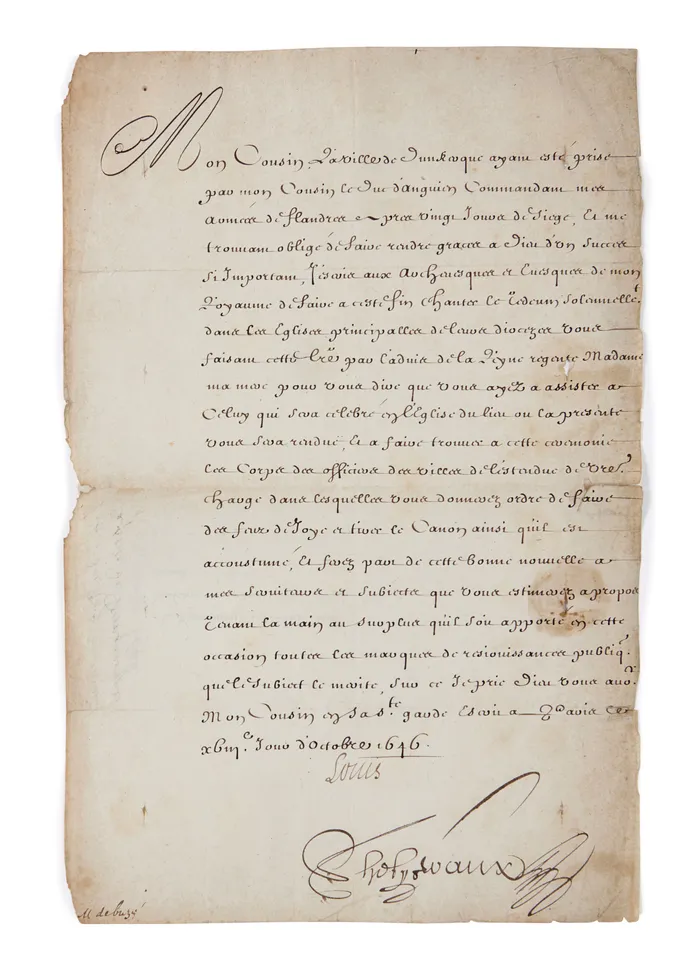 Mon Cousin, La ville de Dunkerque ayant esté prise
par mon Cousin le Duc d'anguien Commandant mes
Armées de flandres apres vingt Jours de siege, Et me
trouvant obligé de faire rendre graces a Dieu d'un succes
si Important, J'escris aux Archevesques et Evesques de mon
Royaume de faire a ceste fin chanter le Tedeum solennellet
dans les Eglises principalles de leurs diocezes vous
faisant cette lre par l'advis de la Reyne regente Madame
ma mere pour vous dire que vous ayez a assister a
Celuy qui sera celebré en l'Eglise du lieu ou la presente
vous sera rendue, Et a faire trouver a cette ceremonie
les Corps des officiers des villes de l'estendue de vre
charge dans lesquelles vous donnerez ordre de faire
des feux de Joye et tirer le Canon ainsi qu'il est
accoustumé, Et ferez part de cette bonne nouvelle a
mes serviteurs et subiects que vous estimerez a propos
Tenant la main au surplus qu'il soit apporté en cette
occasion toutes les marques de resiouissances publiq.
que le subiect le merite, sur ce Je prie Dieu vous avoir
Mon Cousin en sa ste garde Escrit a Paris le
xviii.e Jour d'Octobre 1646.
Louis
Phelypeaux
M de buzé